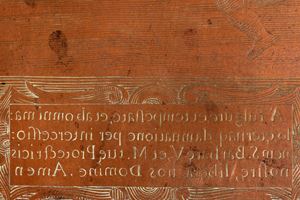 A fulgure et tempestate, et ab omni ma
lo æternaq damnatione per intercessio:
nem S. Barbaræ V. et M. tuæ Protectricis
nostræ Libera nos Domine Amen